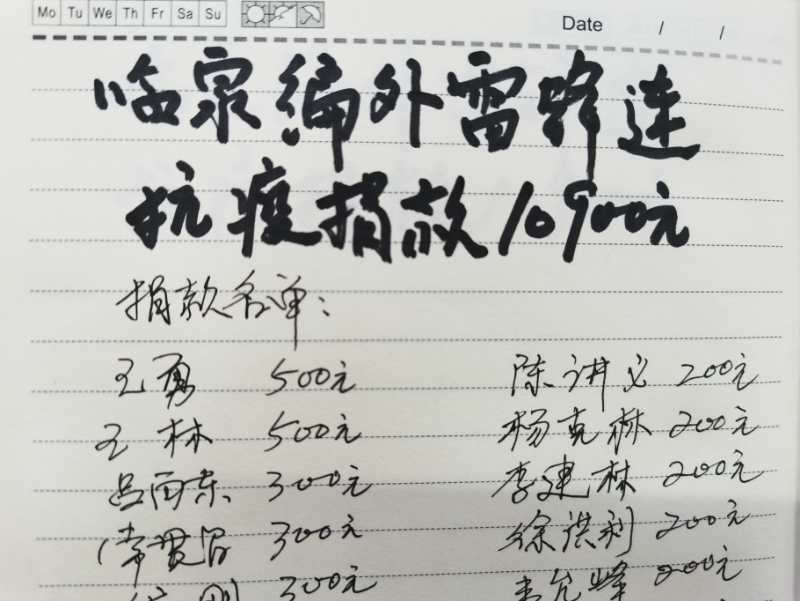 Mo Tu We Th Fr Sa Su
Date / /
临泉编外雷锋连
抗疫捐款10900元
捐款名单:
王勇 500元 陈讲义 200元
王林 500元 杨克林 200元
吕西东 300元 李建林 200元
常贯昌 300元 徐洪利 200元
刚 300元 允峰 200元